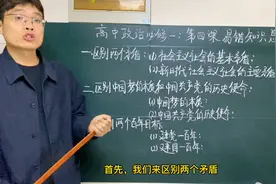 高中政治必修二：第四课 易错知识点
一、区别两个矛盾：(1)社会主义社会的基本矛盾
(2)新时代社会主义社会的主要矛盾
二、区别中国梦的本质和中国共产党的历史使命
(1)中国梦的本质：
(2)中国共产党的历史使命：
两个百年目标
(1)建党一百年：
(2)建国一百年：
首先，我们来区别两个矛盾